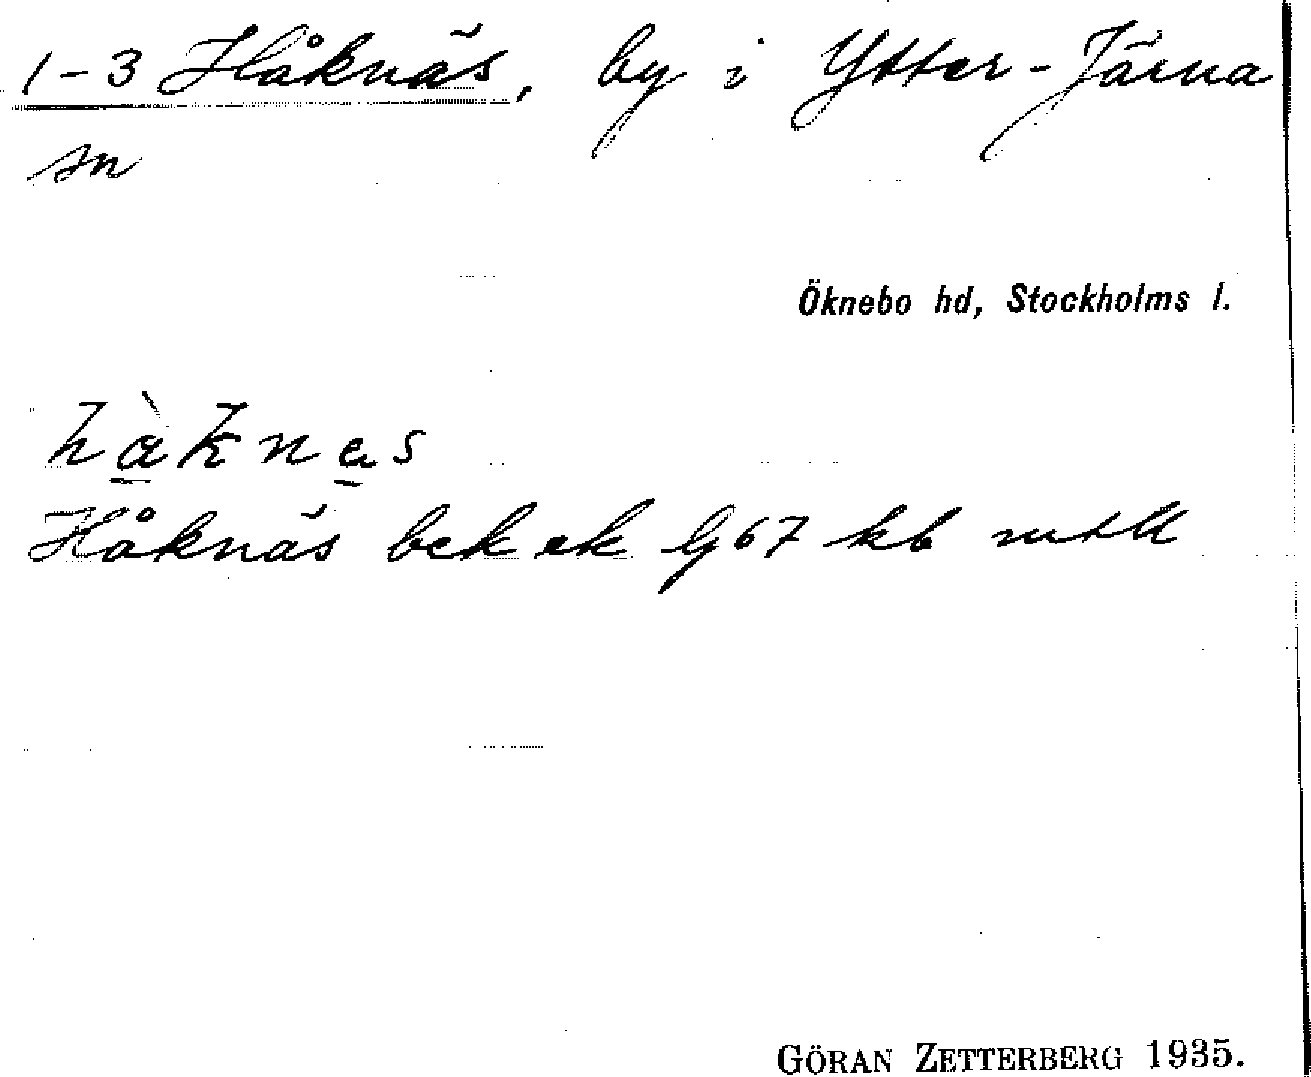 1-3 Håknäs, by i Ytter-Järna
sn
Öknebo hd, Stockholms l.
hàknas
Håknäs bek ek Gg 67 kb mtll
GÖRAN ZETTERBERG 1935.